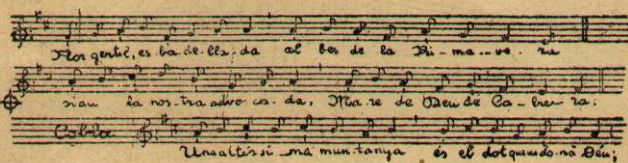 Flor gentil, es ba-de-lla-da al bes de la Pri-ma-ve-ra
siau la nos-tra advo-ca-da, Ma-re de Deu de Ca-bre-ra.
Cobla
Una altissi-ma mun-tanya és el dot que us do-nà Deu;